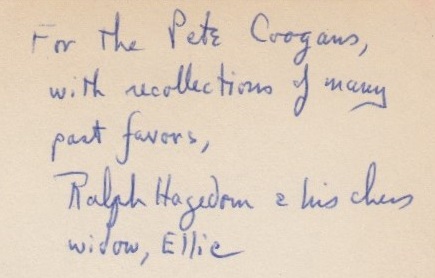 For the Pete Coogans,
with recollections of many
past favors,
Ralph Hagedorn & his chess
widow, Ellie